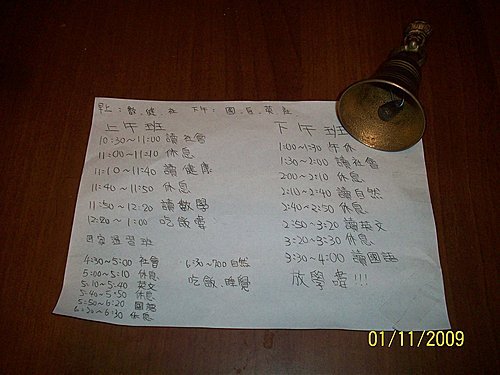 早上:數、健、社 下午: 國、自、英、社
上午班
10:30~11:00 讀社會
11:00~11:10 休息
11:10~11:40 讀健康
11:40~11:50 休息
11:50~12:20 讀數學
12:20~1:00 吃飯
下午班
1:00~1:30 午休
1:30~2:00 讀社會
2:00~2:10 休息
2:10~2:40 讀自然
2:40~2:50 休息
2:50~3:20 讀英文
3:20~3:30 休息
3:30~4:00 讀國語
放學 !!!
習班
4:30~5:00 社會
5:00~5:10 休息
5:10~5:40 英文
5:40~5:50 休息
5:50~6:20 國語
6:20~6:30 休息
6:30~7:00 自然
吃飯、睡覺
01/11/2009